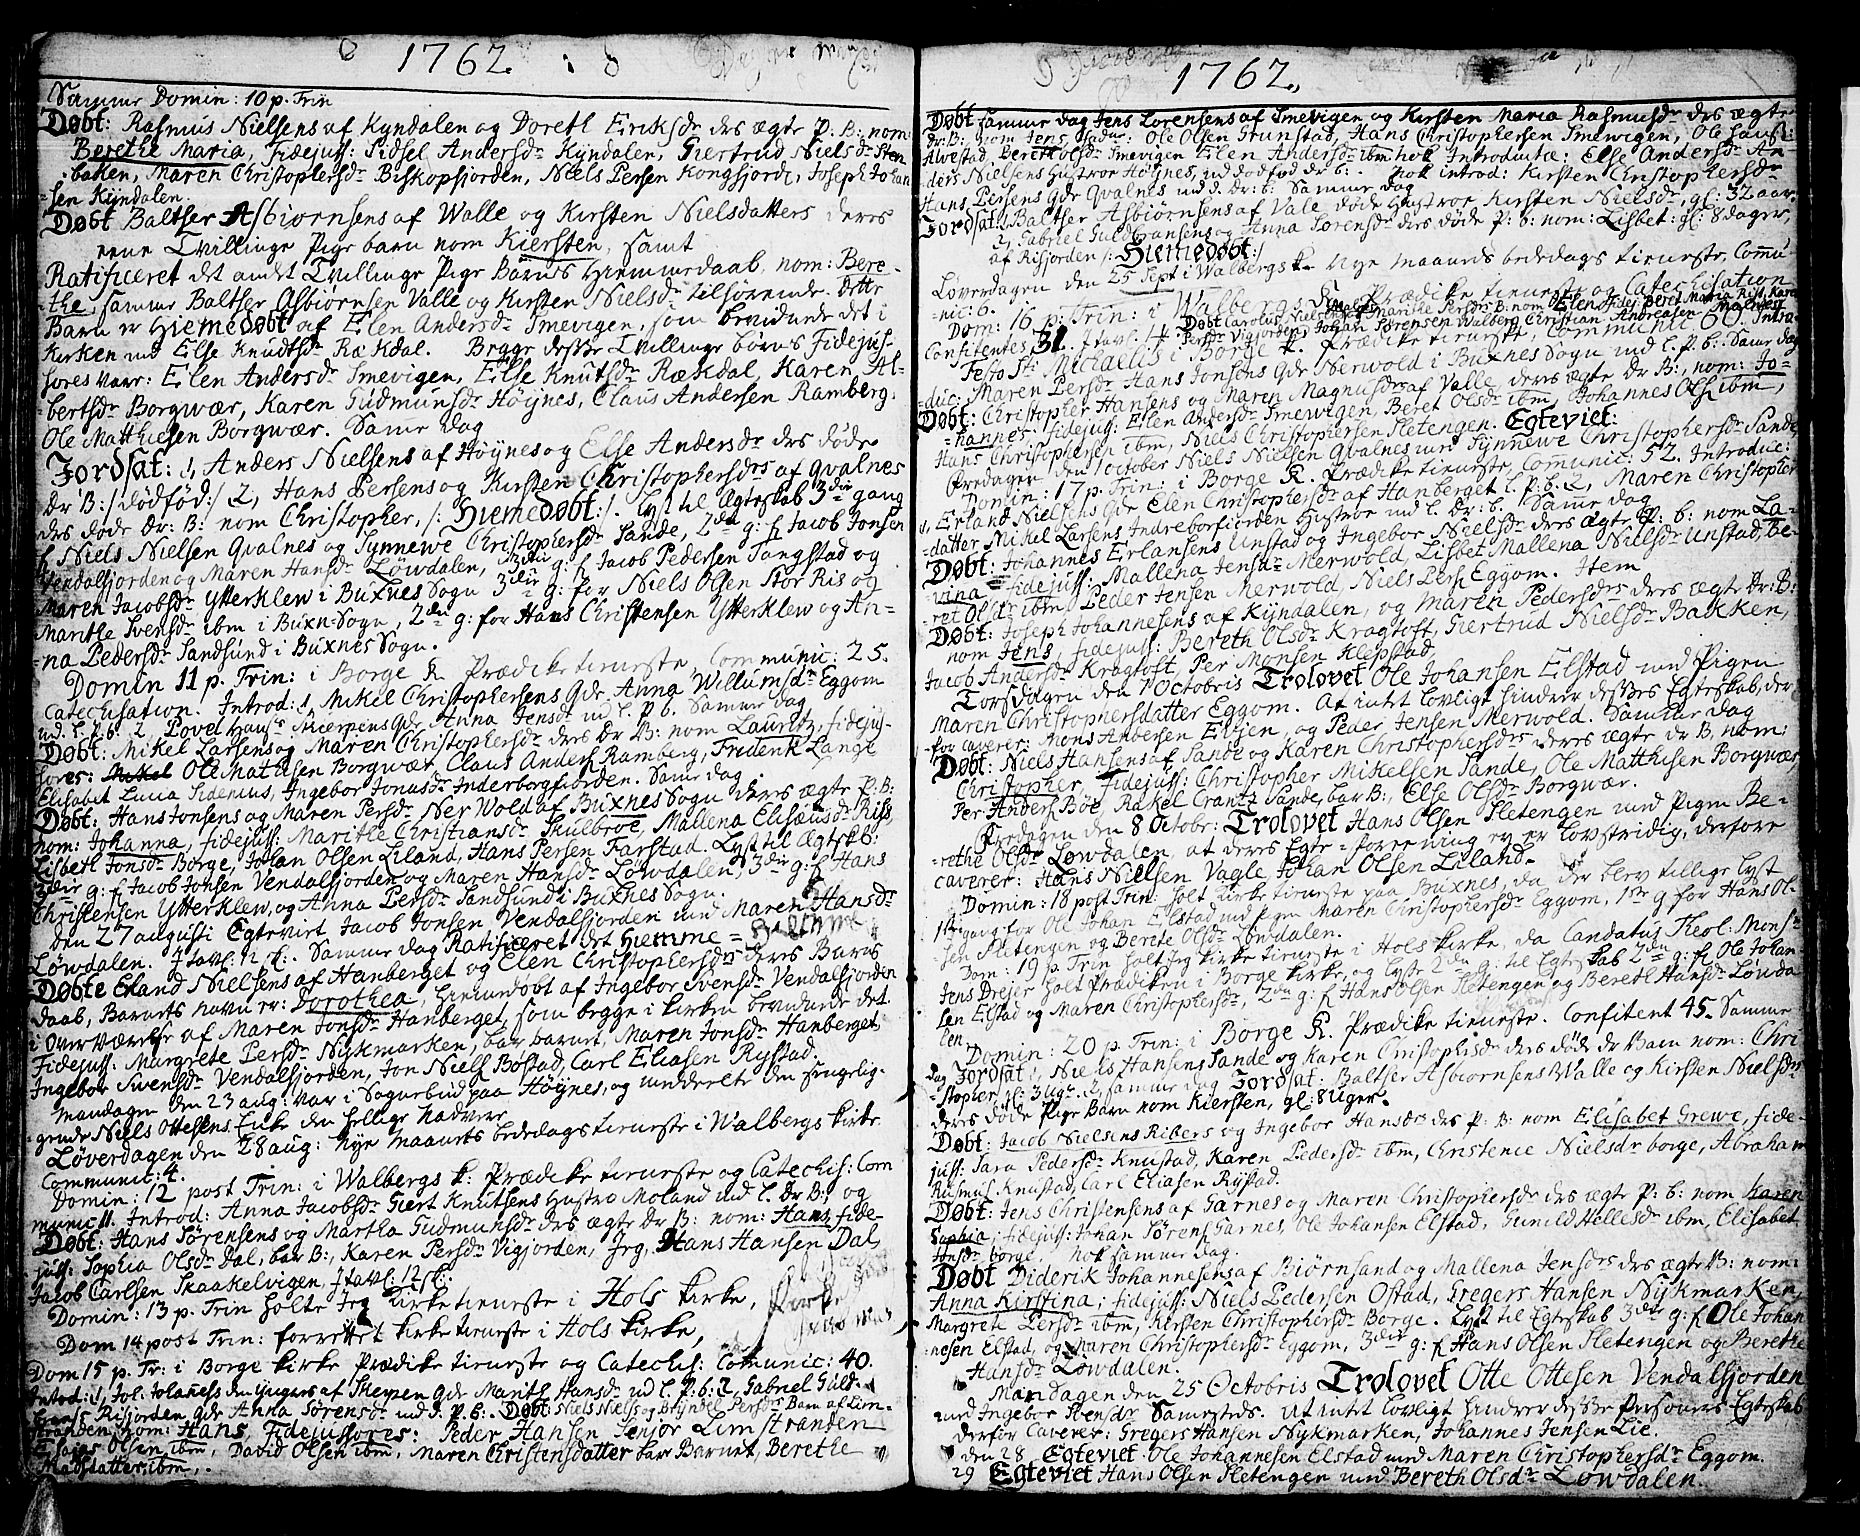 1762.
Samme Domin: 10 p. Trin
Døbt: Rasmus Nielsens af Kyndalen og Doreth Eriksdr des ægte P: B: nom:
Berethe Maria, Fidejuss: Sidsel Andersdr Kyndalen, Giertrud Nielsdr Sten
baken, Maren Christophersdr Biskopfiorden, Niels Persen Kongsjorde, Joseph Johan
=sen Kyndalen.
Døbt Baltser Asbiørnsens af Walle og Kirsten Nielsdatters deres
ene Tvillinge Pige barn nom Kiersten, samt
Ratificeret det andet Tvillinge Pige Barns Hiemmedaab, nom: Bere-
-the, samme Baltser Asbiørnsen Valle og Kirsten Nielsdr tilhørende. dette
Barn er Hiemedøbt af Elen Andersdr Smevigen, som bevidnede det i
Kirken med Else Knudtsdr Rækdal. Begge disse Tvillinge børns Fidejus-
sores vaar: Elen Andersdr Smevigen, Else Knutsdr Rækdal, Karen Al-
=bertsdr Borgwær, Karen Gudmunsdr Høynes, Claus Andersen Ramberg,
Ole Matthiesen Borgwær. Same dag
Jordsat: 1, Anders Nielsens af Høynes og Else Andersdr des døde
dr B: /: dødfød :/ 2, Hans Persens og Kirsten Christophersdrs af Qvalnes
des døde dr: B: nom Christopher, /: Hiemedøbt :/. Lyst til Ægteskab 3die gang
f Niels Nielsen Qvalnes og Synnewe Christophersdr Sande, 2den g: f Jacob Jonsen
Vendalfjorden og Maren Hansdr Løwdalen, 3die g: f Jacob Pedersen Tangstad og
Maren Jacobsdr Ytterklew i Buxnes Sogn 3die g: for Niels Olsen Stor Ris og
Marithe Svensdr ibm i Buxn: Sogn, 2den g: for Hans Christensen Ytterklew og An-
=na Pedersdr Sandsund i Buxnes Sogn.
Domin 11 p. Trin: i Borge K. Prædike tieneste, Communic: 25.
Catechisation. Introd: 1, Mikel Christophersens Qde Anna Willumsdr Eggom
md. l. P. b. 2, Povel Hans Skierpens Qde Anna Jensdr md l. P. b. Samme dag
Døbt: Mikel Larsens og Maren Christophersdr deres dr B: nom Lauritz, fidejus-
sores: Ole Mathisen Borgwær, Claus Anders Ramberg, Friderik Lange
Elisabet Lucia Sidenius, Ingebor Jonasdr Inderborgfiorden. Same dag
Døbt: Hans Jonsens og Maren Persdr Ner Wold af Buxnes Sogn deres ægte P: B:
nom: Johanna, fidejuss: Marithe Christiansdr Skulbroe, Mallena Elisæusdr Riss,
Lisbeth Jonsdr Borge, Johan Olsen Liland, Hans Persen Farstad. Lyst til Ægteskb:
3die g: f Jacob Jonsen Vendalfjorden og Maren Hansdr Løwdalen, 3die g: f Hans
Christensen Ytterklew, og Anna Persdr Sandsund i Buxnes Sogn.
Den 27 augusti Egteviet Jacob Jonsen Vendalsfjorden med Maren Hansdr
Løwdalen. I tavl: 12 sk: Samme dag Ratificeret det Hiemme=
Døbte Erland Nielsens af Hanberget og Elen Christophersdrs deres Barns
daab, Barnets navn er: Dorothea, hiemmedøbt af Ingebor Svensdr Vendalsfjorden
i Overværelse af Maren Jonsdr Hanberget, som begge i kirken bevidnede det.
Fidejuss: Margrete Persdr Nykmarken, bar barnet, Maren Jonsdr Hanberget,
Ingebor Swensdr Vendalsfjorden, Jon Niels Bøstad, Carl Eliasen Rystad.
Mandagen den 23 aug: var i Sognebud paa Høynes, og meddeelte den singelig-
gende Niels Ottesens Enke den hellige Nadvere.
Løverdagen den 28 aug: Nye Maanets bededags tieneste i Walbergs kirke.
Communic: 4.
Domin: 12 post Trin: i Walbergs k: Prædike tieneste og Catechis: Com
munic 11. Introd: Anna Jacobsdr Giert Knutsens Hustro Moland md l. Dr B:, og
Døbt: Hans Sørensens og Martha Gudmunsdr des ægte dr B: nom: Hans, fide-
juss: Sophia Olsdr Dal, bar B:, Karen Persdr Vigjorden, Jeg, Hans Hansen Dal,
Jacob Carlsen Skaakelvigen, I tavl: 12 sk:.
Domin: 13 p. Trin holte Jeg kirke tieneste i Hols kirke,
Dom 14 post Trin: forrettet kirke tieneste i Hols kirke,
Dom 15 p. Tr: i Borge kirke Prædike tieneste og Catechis: Comunic: 40.
Introd: 1, Joh. Johaness den yngers af Skepen Qde Marith Hansdr md l. P: b: 2, Gabriel Guld-
bransens Risfjorden Qde Anna Sørensdr md d. P. b. Døbt Niels Niels og Bryndel Persdr Barn af Lim-
stranden, nom: Hans, Fidejussores: Peder Hansen Senjor Limstranden
Elsens Olsen ibm, David Olsen ibm, Maren Christensdatter bar Barnet, Berethe
Madsdatter ibm.
1762.
Døbt samme dag Jens Lorensens af Smevigen og Kirsten Maria Rasmusdr des ægte
dr: B: nom Jens fadde: Ole Olsen Grunstad, Hans Christophersen Smevigen, Ole
Alvestad, Bereth Olsdr Smevigen Elen Andersdr ibm. hok Introductæ: Else Andersdr An-
ders Nielsens Hustroe Høynes, md dødfød dr b: hok introd: Kirsten Christophersdr
Hans Persens Qde Qvalnes md d. dr: b: Samme dag
Jordsat: 1, Baltser Asbiørnsens af Vale døde Hustroe Kirsten Nielsdr, gl: 32 aar,
2, Gabriel Guldbransens og Anna Sørensdr des døde P: b: nom: Lisbet: gl: 8 dager,
af Risjorden /: Hiemedøbt :/
Løverdagen den 25 Sept i Walbergs k. Nye maaneds bededags tieneste, Commu-
nic: 6.
Dom: 16 p. Trin: i Walbergs k. Prædike tieneste og Catechisation
Confitentes 31. I tavl. 4. Døbt Carolus Nielsens Marithe Persdr B: nom Elen Fidej: Beret Maria Riss, Karen
Persdr Vigjorden, Johan Sørensen Walberg, Christian Andreasen Malnes
Festo Sti Michaelis i Borge k. Prædike tieneste, Communic 60. Intro-
duc: Maren Persdr Hans Jonsens Qde Nerwold i Buxnes Sogn md l. P. b: Samme dag
Døbt: Christopher Hansens og Maren Magnusdr af Valle, deres ægte dr B:, nom: Jo-
-hannes, fidejuss: Elen Andersdr Smewigen, Beret Olsdr ibm, Johannes Ols ibm,
Hans Christophersen ibm, Niels Christophersen Sletengen. Egteviet:
Fredagen den 1 October Niels Nielsen Qvalnes md Synnewe Christophersdr Sande
Domin: 17 p. Trin: i Borge K. Prædike tieneste, Communic: 52. Introduce:
1, Erland Nielsens Qde Elen Christophersdr af Hanberget l. p: b. 2, Maren Christopher
-datter Mikel Larsens Indreborfiorden Hustroe md l. Dr: b. Samme dag
Døbt: Johannes Erlansens Unstad og Ingebor Nielsdr deres ægte P: b: nom La-
-vina, fidejuss: Mallena Jensdr Merwold, Lisbet Mallena Nielsdr Unstad, Be-
-ret Olsdr ibm, Peder Jensen Merwold, Niels Pers Eggom. Item
Døbt: Joseph Johannesens af Kyndalen, og Maren Pedersdrs deres ægte Dr: B:
nom Jens, fidejuss: Bereth Olsdr Kragtoft, Giertrud Nielsdr Bakken,
Jacob Andersdr Kragtoft, Per Monsen Klepstad,
Torsdagen den 7 Octobris Trolovet Ole Johansen Elstad med Pigen
Maren Christophersdatter Eggom. At intet Lovligt hindrer disses Egteskab, der-
for caverer: Mons Andersen Evjen, og Peder Jensen Merwold. Samme dag
Døbt: Niels Hansens af Sande og Karen Christophersdrs deres ægte dr B. nom:
Christopher, fidejuss: Christopher Mikelsen Sande, Ole Matthisen Borgwær,
Per Anders Bøe, Rakel Crantz Sande, bar B:, Else Olsdr Borgwær.
Fredagen den 8 Octobr: Trolovet Hans Olsen Sletengen med Pigen Be-
-rethe Olsdr Løwdalen, at deres Egte-foreening ey er Lovstridig, derfore
caverer: Hans Nielsen Vagle Johan Olsen Liland.
Domin: 18 post Trin: holt kirke tieneste paa Buxnes, da der blev tillige Lyst
1ste gang for Ole Johan Elstad md Pigen Maren Christophersdr Eggom, 1ste g for Hans Ol-
sen Sletengen og Berete Olsdr Løwdalen.
Dom: 19 p. Trin holt Jeg kirke tieneste i Hols kirke, da Candatus Theol: Monsr
Jens Drejer holt Prædiken i Borge kirke, og Lyste 2den g: til Egteskab 2den g: f. Ole Johan
sen Elstad og Maren Christophersdr, 2den g: f Hans Olsen Sletengen og Bereth Hansdr Løwda
len.
Domin: 20 p. Trin: i Borge K. Prædike tieneste. Confitent 45. Samme
dag Jordsat 1, Niels Hansens Sande og Karen Christophersdr des døde dr Barn nom: Chri
=stopher gl: 3 uger. 2, samme dag Jordsat: Baltser Asbiørnsens Walle og Kirsten Nielsdrs
deres døde Pige Barn nom Kiersten, gl: 8 uger.
Døbt: Jacob Nielsens Ribers og Ingebor Hansdrs des P: B: nom Elisabet Grewe, fide-
juss: Sara Pedersdr Knustad, Karen Pedersdr ibm, Christence Nielsdr borge, Abraham
Rasmus Knustad, Carl Eliasen Rystad.
Døbt: Jens Christensens af Garnes og Maren Christophersdr des ægte P: b: nom Karen
Sophia, fidejuss: Johan Sørens Garnes, Ole Johansen Elstad, Gunild Hellesdr ibm, Elisabet
Jonsdr borge, hok samme dag.
Døbt Diderik Johannesens af Biørnsand og Mallena Jensdrs des ægte B: nom:
Anna Kirstina, fidejuss: Niels Pedersen Ostad, Gregers Hansen Nykmarken,
Margrete Persdr ibm, Kirsten Christophersdr Borge. Lyst til Egteskab 3die g: f Ole Johan
nesen Elstad, og Maren Christophersdr Eggom, 3die g: f Hans Olsen Sletengen og Berethe
Hansdr Løwdalen.
Mandagen den 25 Octobris Trolovet Otte Ottesen Vendalsfjorden
med Ingebor Stensdr Sammesteds. at intet lovligt hindrer disse Personers Egteskab
derfor Caverer: Gregers Hansen Nykmarken, Johannes Jensen Lie.
den 28 Egteviet Ole Johannesen Elstad med Maren Christophersdr Eggom.
29 Egteviet Hans Olsen Sletengen med Bereth Olsdr Løwdalen.